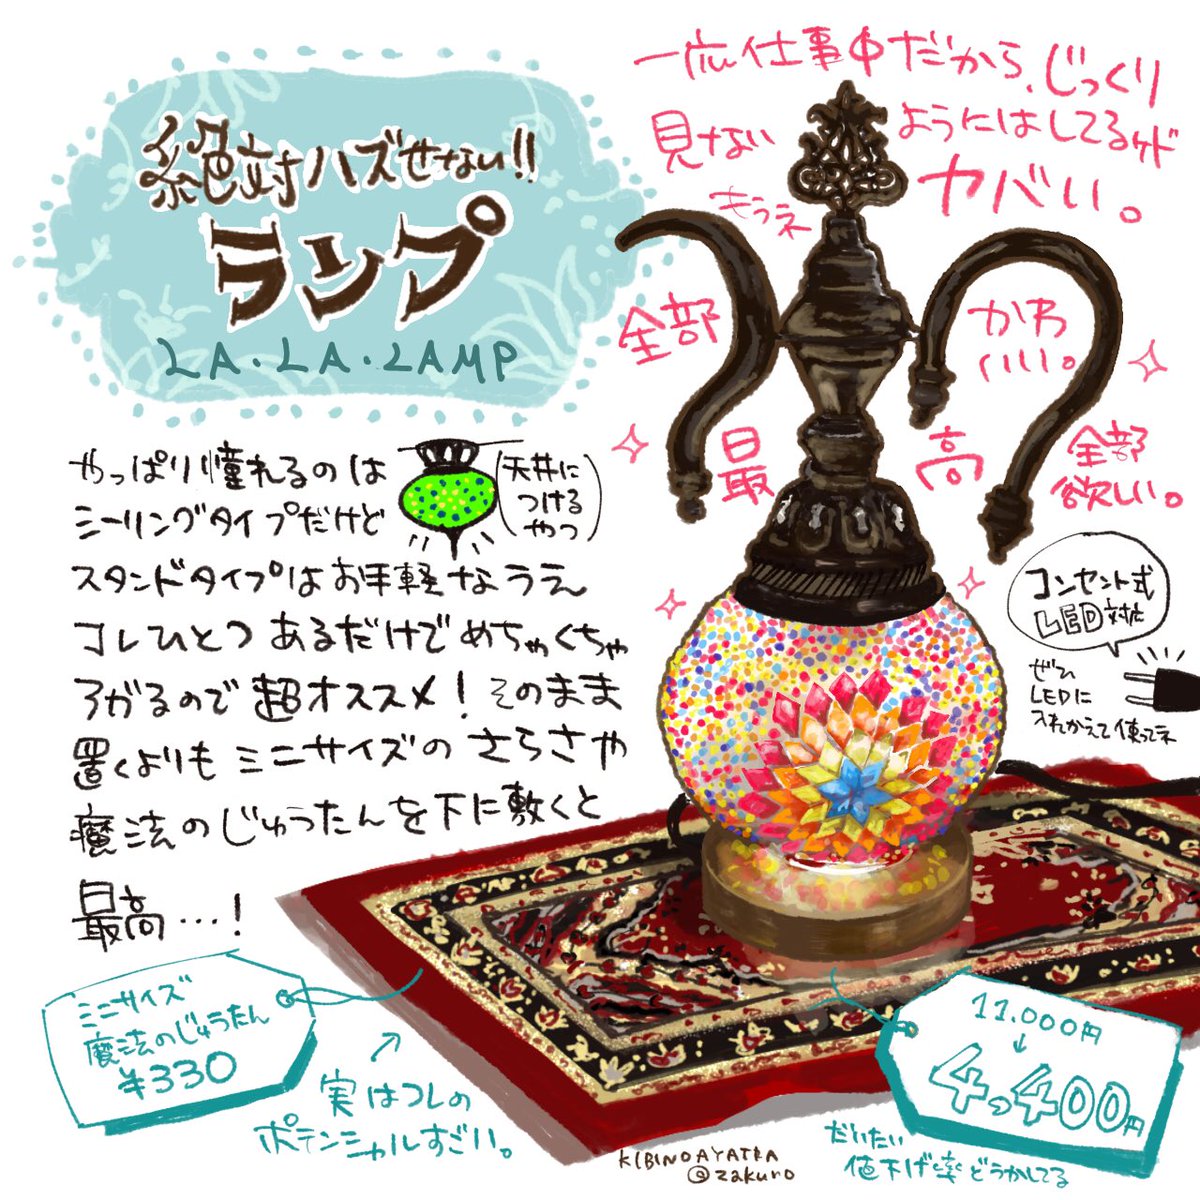 絶対ハズせない!!
ランプ
LA・LA・LAMP
一応仕事中だから、じっくり
見ない
ようにはしてるケド
もうネ
ヤバい。
全部
かわ
いい。
最高
全部
欲しい。
やっぱり憧れるのは
シーリングタイプだけど
(天井に
つける
やつ)
スタンドタイプはお手軽なうえ
コレひとつあるだけでめちゃくちゃ
アガるので超オススメ!そのまま
置くよりもミニサイズのさらさや
魔法のじゅうたんを下に敷くと
最高…!
コンセント式
LED対応
ぜひ
LEDに
入れかえて使ってネ
ミニサイズ
魔法のじゅうたん
¥330
実はコレの
ポテンシャルすごい。
11.000円
↓
4,400円
だいたい
値下げ率どうかしてる
KIBINOAYATRA
@zakuro